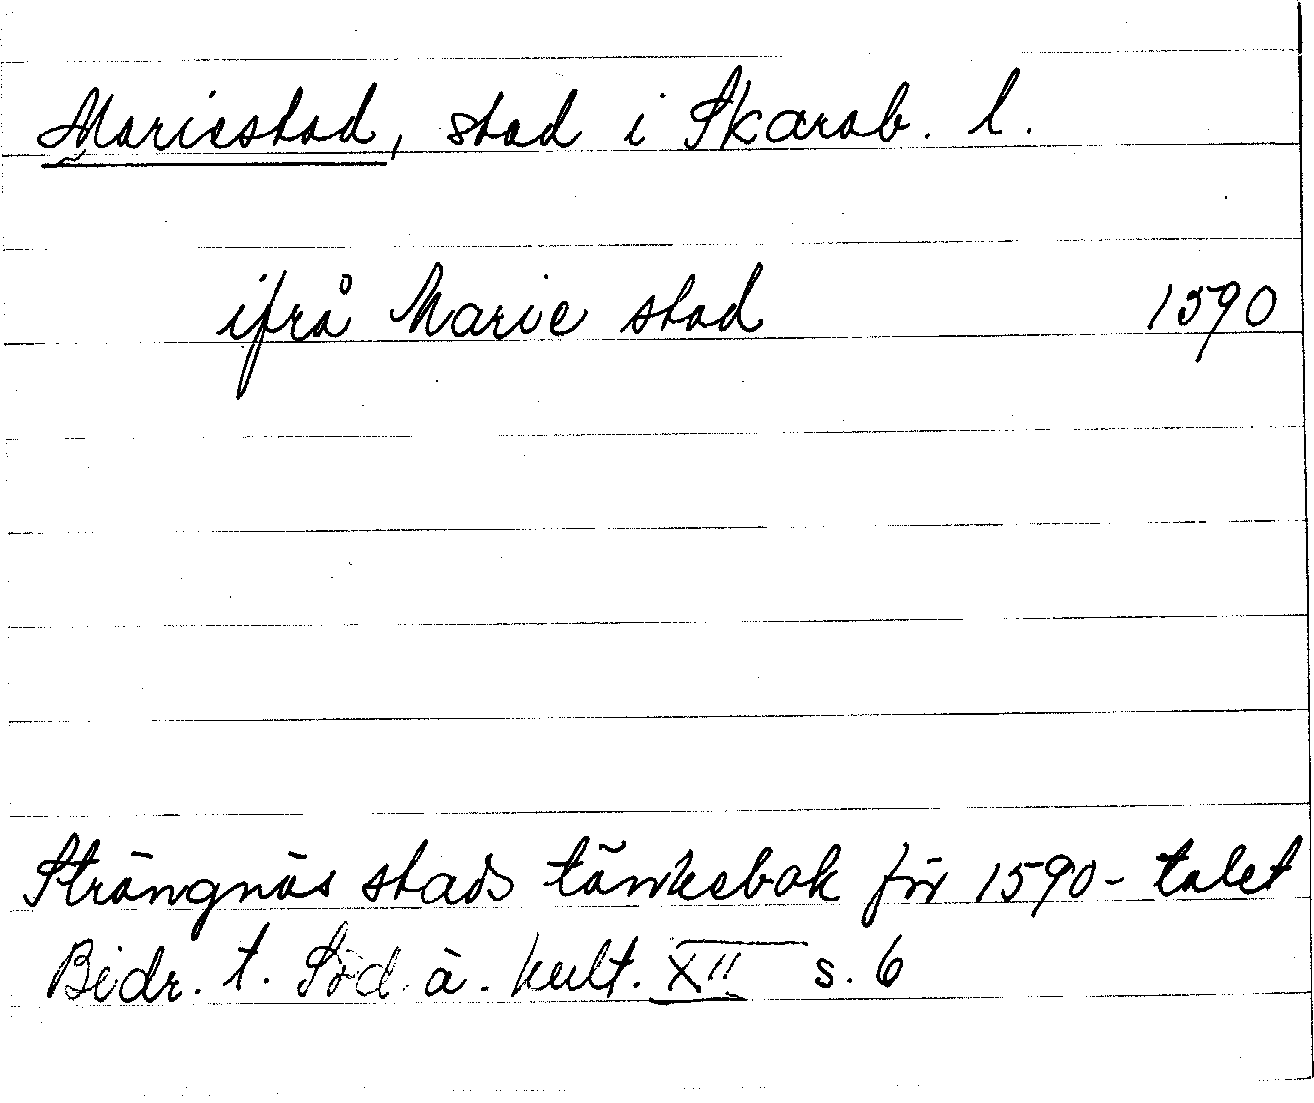 Mariestad, stad i Skarab. l.
ifrå Marie stad 1590
Strängnäs stads tänkebok för 1590-talet
Bidr. t. Söd. ä. kult. XII s. 6